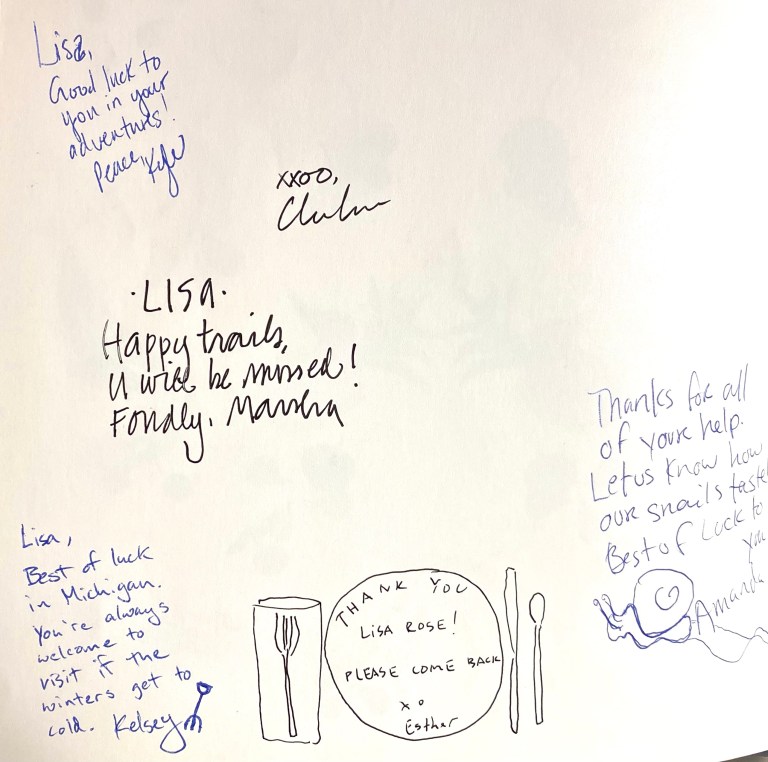 Lisa,
Good luck to
you in your
adventures!
Peace, Kyle
xxoo,
·LISA·
Happy trails,
U will be missed!
Fondly, Marsha
Thanks for all
of your help.
Let us know how
our snails taste!
Best of luck to
you
Amanda
Lisa,
Best of luck
in Michigan.
You're always
welcome to
visit if the
winters get to
cold. Kelsey
THANK YOU
LISA ROSE!
PLEASE COME BACK
xo
Esther